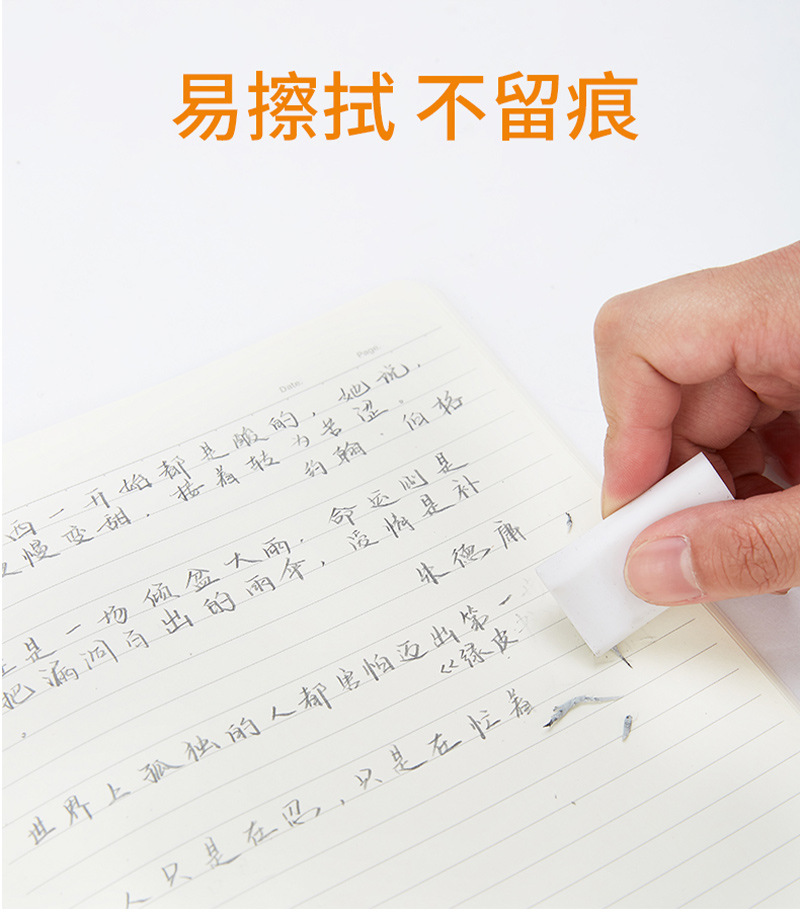 易擦拭 不留痕
Date: Page:
西一开始都是酸的，她说，
慢变甜，接着转为苦涩。
约翰·伯格
是一场倾盆大雨，命运则是
把漏洞百出的雨伞，爱情是补
朱德庸
世界上孤独的人都害怕迈出第一
《绿皮
人只是在忍，只是在忙着